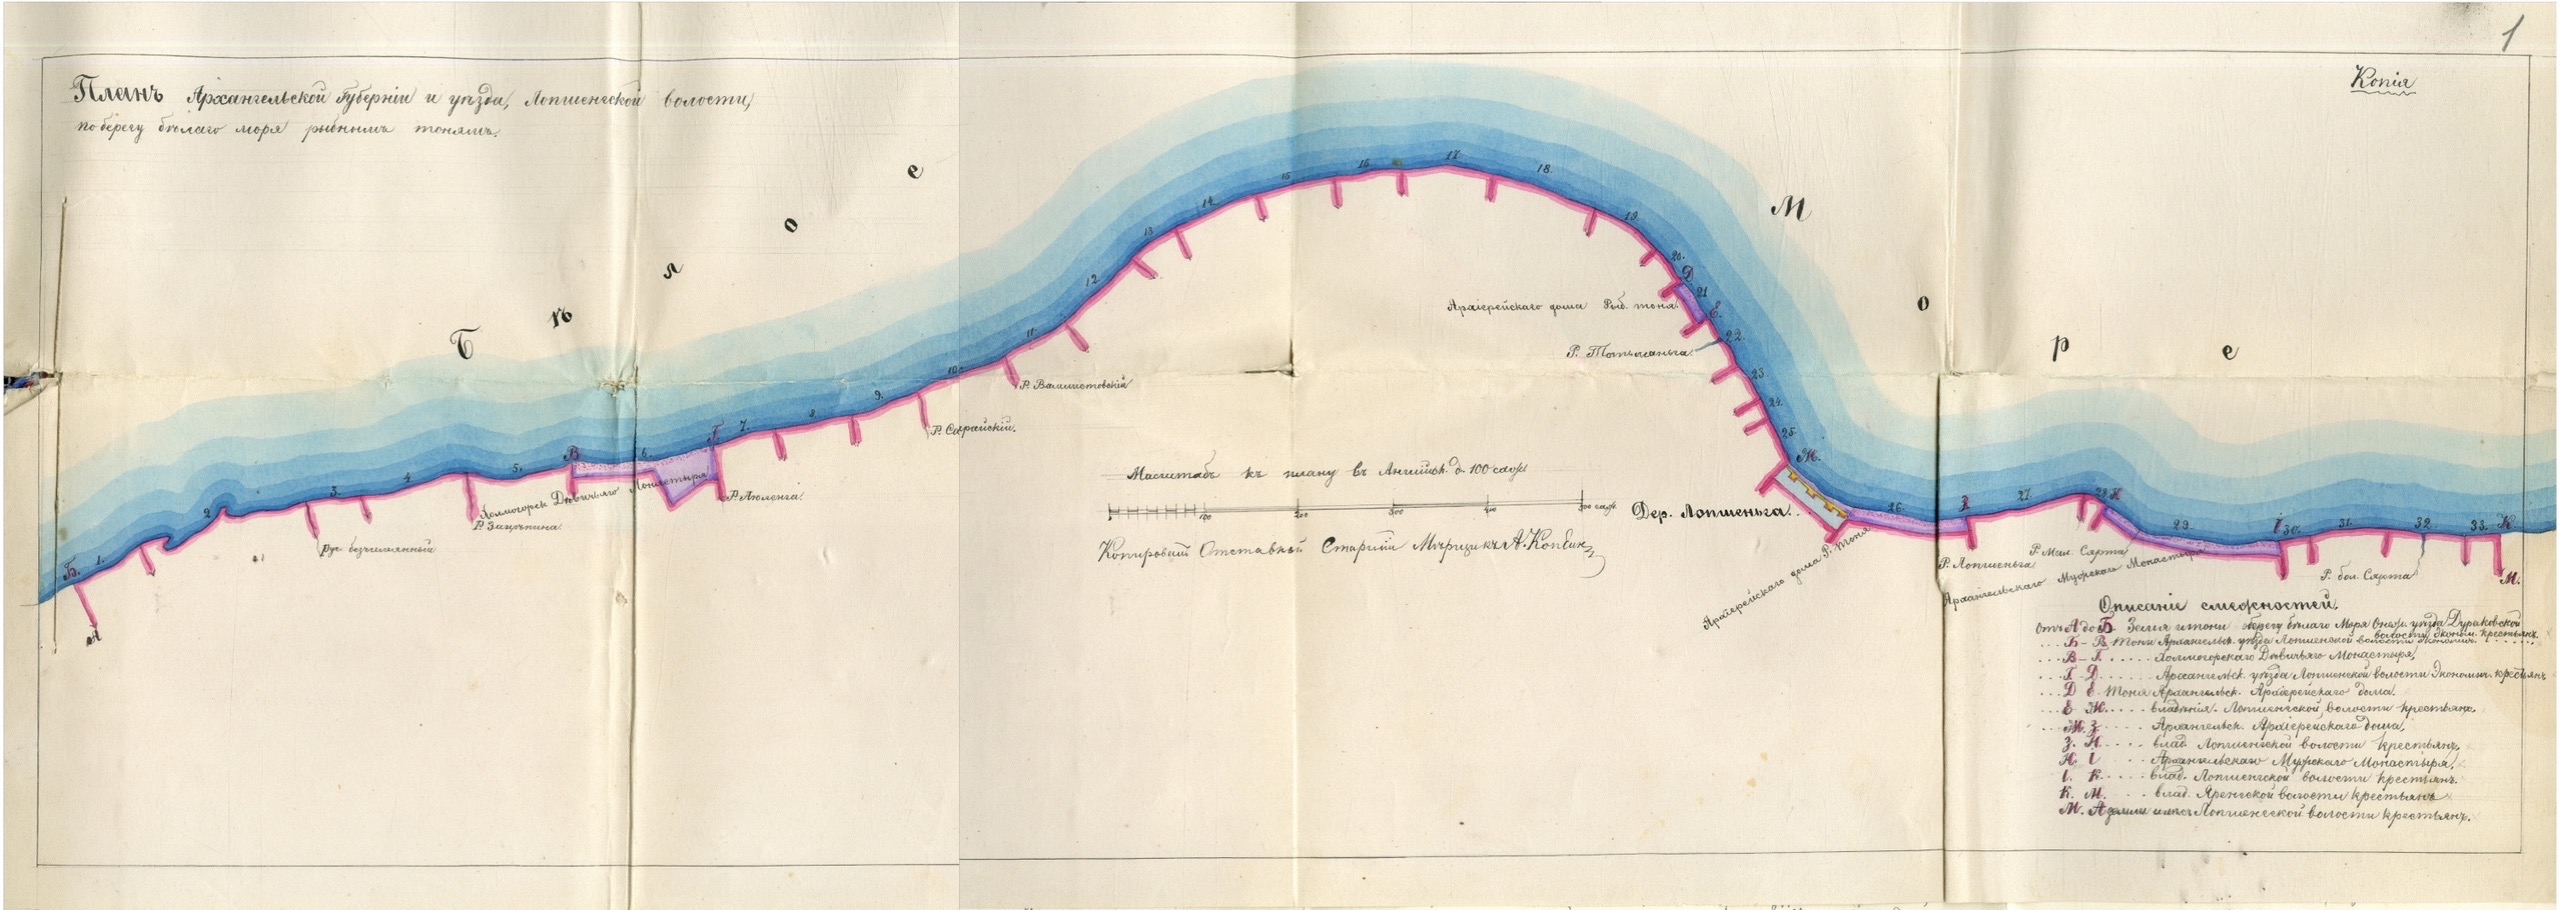 1
Копія
Планъ Архангельской Губерніи и уѣзда, Лопшенгской волости,
по берегу бѣлаго моря рыбнымъ тонямъ.
Б ѣ л о е М о р е
Б. 1. 2. 3. 4. 5. В 6. Г 7. 8. 9. 10. 11. 12. 13. 14. 15. 16. 17. 18. 19. 20. Д 21 Е. 22. 23. 24. 25. Ж. 26. З 27. 28. И 29. І 30. 31. 32. 33. К
А
М.
Руч. безъимянный
Р. Зацѣпина.
Холмогорск Дѣвичьяго Монастыря
Р. Люленга.
Р. Сѣ
Р.
Архіерейскаго дома Рыб. тоня.
Р.
Дер. Лопшеньга.
Архіерейскаго дома Р. тоня
Р. Лопшеньга
Р. Мал. Сярта
Архангельскаго Монастыря
Р. бол. Сярта
Масштабъ къ плану въ Англійск. д. 100 саж
100 200 300 400 500 саж.
Копировалъ Отставной Старшій Мѣрщикъ А.
Описаніе смежностей.
Отъ А до Б Земля и тони берегу бѣлаго Моря Онеж. уѣзда Дураковской
волости Эконом. крестьянъ.
Б - В Тони Архангельск. уѣзда Лопшенгской волости Экономич.
В - Г Холмогорскаго Дѣвичьяго Монастыря,
Г Д Архангельск. уѣзда Лопшенгской волости Экономич. крестьянъ
Д Е Тоня Архангельск. Архіерейскаго дома.
Е Ж владѣнія. Лопшенгской волости крестьянъ.
Ж З Архангельск. Архіерейскаго дома,
З. И влад. Лопшенгской волости крестьянъ.
И. І Архангельскаго Монастыря.
І. К влад. Лопшенгской волости крестьянъ.
К. М. влад. Яренгской волости крестьянъ
М. А Лопшенгской волости крестьянъ.